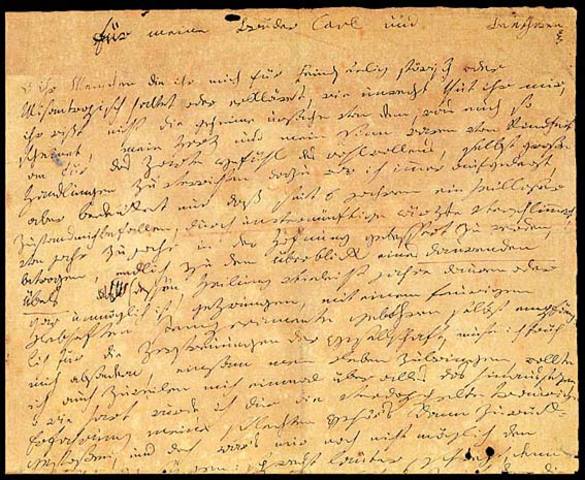 für meine Brüder Carl und Beethoven
O ihr Menschen die ihr mich für feindseelig störisch oder
Misantropisch haltet oder erkläret, wie unrecht thut ihr mir,
ihr wißt nicht die geheime ursache von dem, was euch so
scheinet, mein Herz und mein Sinn waren von Kindheit
an für das Zarte Gefühl des wohlwollens, selbst große
Handlungen zu verrichten dazu war ich immer aufgelegt
aber bedenket nur daß seit 6 jahren ein heilloser
Zustand mich befallen, durch unvernünftige ärzte verschlimmert,
von jahr zu jahr in der Hofnung gebessert zu werden,
betrogen, endlich zu dem überblick eines daurenden
Übels dessen Heilung vieleicht jahre dauren oder
gar unmöglich ist, gezwungen, mit einem feuerigen
Lebhaften Temperamente gebohren selbst empfäng-
lich für die Zerstreuungen der Gesellschaft, muste ich früh
mich absondern, einsam mein Leben zubringen, wollte
ich auch zuweilen mich einmal über alles das hinaussezen,
o wie hart wurde ich dur die verdoppelte traurige
Erfahrung meines schlechten Gehör's dann zurück-
gestoßen, und doch war's mir noch nicht möglich den
sprecht lauter, schreyt, denn